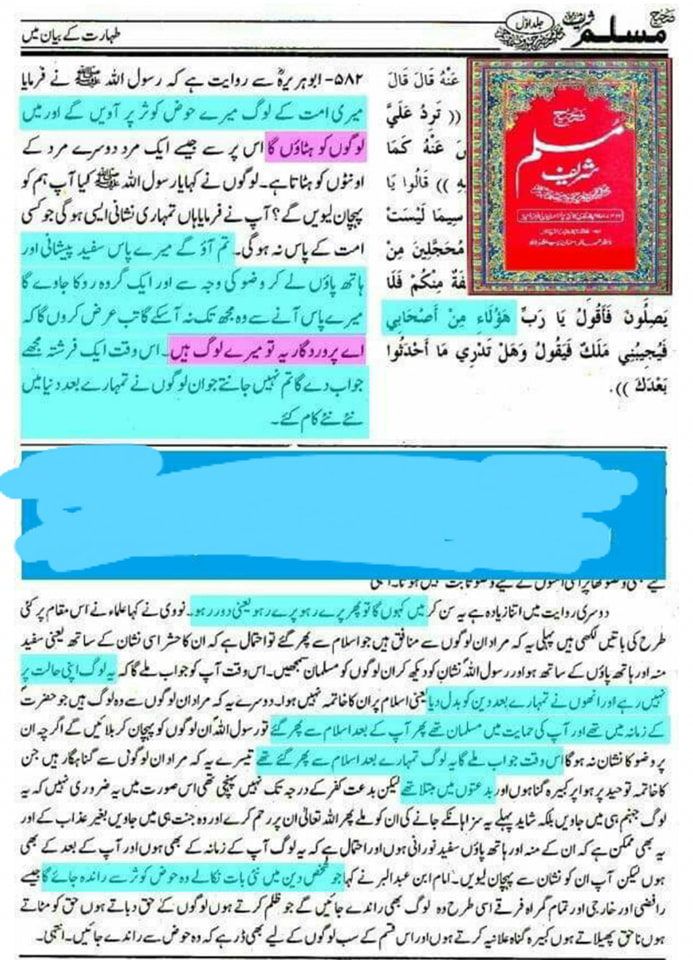 صحیح مسلم شریف جلد اوّل
طہارت کے بیان میں
۵۸۲- ابوہریرہؓ سے روایت ہے کہ رسول اللہ ﷺ نے فرمایا
میری امت کے لوگ میرے حوض کوثر پر آویں گے اور میں
لوگوں کو ہٹاؤں گا اس پر سے جیسے ایک مرد دوسرے مرد کے
اونٹوں کو ہٹاتا ہے۔ لوگوں نے کہا یا رسول اللہ ﷺ کیا آپ ہم کو
پہچان لیویں گے؟ آپ نے فرمایا ہاں تمہاری نشانی ایسی ہوگی جو کسی
امت کے پاس نہ ہوگی۔ تم آؤ گے میرے پاس سفید پیشانی اور
ہاتھ پاؤں لے کر وضو کی وجہ سے اور ایک گروہ روکا جاوے گا
میرے پاس آنے سے وہ مجھ تک نہ آسکے گا تب عرض کروں گا کہ
اے پروردگار یہ تو میرے لوگ ہیں۔ اس وقت ایک فرشتہ مجھے
جواب دے گا تم نہیں جانتے جو ان لوگوں نے تمہارے بعد دنیا میں
نئے نئے کام کئے۔
عَنْهُ قَالَ قَالَ
(( تَرِدُ عَلَيَّ
عَنْهُ كَمَا
)) قَالُوا يَا
سِيمَا لَيْسَتْ
مُحَجَّلِينَ مِنْ
مِنْكُمْ فَلَا
يَصِلُونَ فَأَقُولُ يَا رَبِّ هَؤُلَاءِ مِنْ أَصْحَابِي
فَيُجِيبُنِي مَلَكٌ فَيَقُولُ وَهَلْ تَدْرِي مَا أَحْدَثُوا
بَعْدَكَ )).
صحیح
مسلم
شریف
دوسری روایت میں اتنا زیادہ ہے یہ سن کر میں کہوں گا تو پھر پرے رہو پرے رہو یعنی دور رہو۔ نووی نے کہا علماء نے اس مقام پر کئی
طرح کی باتیں لکھی ہیں پہلی یہ کہ مراد ان لوگوں سے منافق ہیں جو اسلام سے پھر گئے تو احتمال ہے کہ ان کا حشر اسی نشان کے ساتھ یعنی سفید
منہ اور ہاتھ پاؤں کے ساتھ ہو اور رسول اللہ نشان کو دیکھ کر ان لوگوں کو مسلمان سمجھیں۔ اس وقت آپ کو جواب ملے گا کہ یہ لوگ اپنی حالت پر
نہیں رہے اور انھوں نے تمہارے بعد دین کو بدل دیا یعنی اسلام پر ان کا خاتمہ نہیں ہوا۔ دوسرے یہ کہ مراد ان لوگوں سے وہ لوگ ہیں جو حضرت
کے زمانہ میں تھے اور آپ کی حمایت میں مسلمان تھے پھر آپ کے بعد اسلام سے پھر گئے تو رسول اللہ ان لوگوں کو پہچان کر بلائیں گے اگرچہ ان
پر وضو کا نشان نہ ہوگا اس وقت جواب ملے گا یہ لوگ تمہارے بعد اسلام سے پھر گئے تھے تیسرے یہ کہ مراد ان لوگوں سے گناہگار ہیں جن
کا خاتمہ توحید پر ہوا پر کبیرہ گناہوں اور بدعتوں میں مبتلا تھے لیکن بدعت کفر کے درجہ تک نہیں پہنچی تھی اس صورت میں یہ ضروری نہیں کہ یہ
لوگ جہنم ہی میں جاویں بلکہ شاید پہلے یہ سزا ہانکے جانے کی ان کو ملے پھر اللہ تعالیٰ ان پر رحم کرے اور وہ جنت ہی میں جاویں بغیر عذاب کے اور
یہ بھی ممکن ہے کہ ان کے منہ اور ہاتھ پاؤں سفید نورانی ہوں اور احتمال ہے کہ یہ لوگ آپ کے زمانہ کے بھی ہوں اور آپ کے بعد کے بھی
ہوں لیکن آپ ان کو نشان سے پہچان لیویں۔ امام ابن عبدالبر نے کہا جو شخص دین میں نئی بات نکالے وہ حوض کوثر سے راندہ جائے گا جیسے
رافضی اور خارجی اور تمام گمراہ فرقے اسی طرح وہ لوگ بھی راندے جائیں گے جو ظلم کرتے ہوں لوگوں کے حق دباتے ہوں حق کو مٹاتے
ہوں ناحق پھیلاتے ہوں کبیرہ گناہ علانیہ کرتے ہوں اور اس قسم کے سب لوگوں کے لیے بھی ڈر ہے کہ وہ حوض سے راندے جائیں۔ انتہی۔